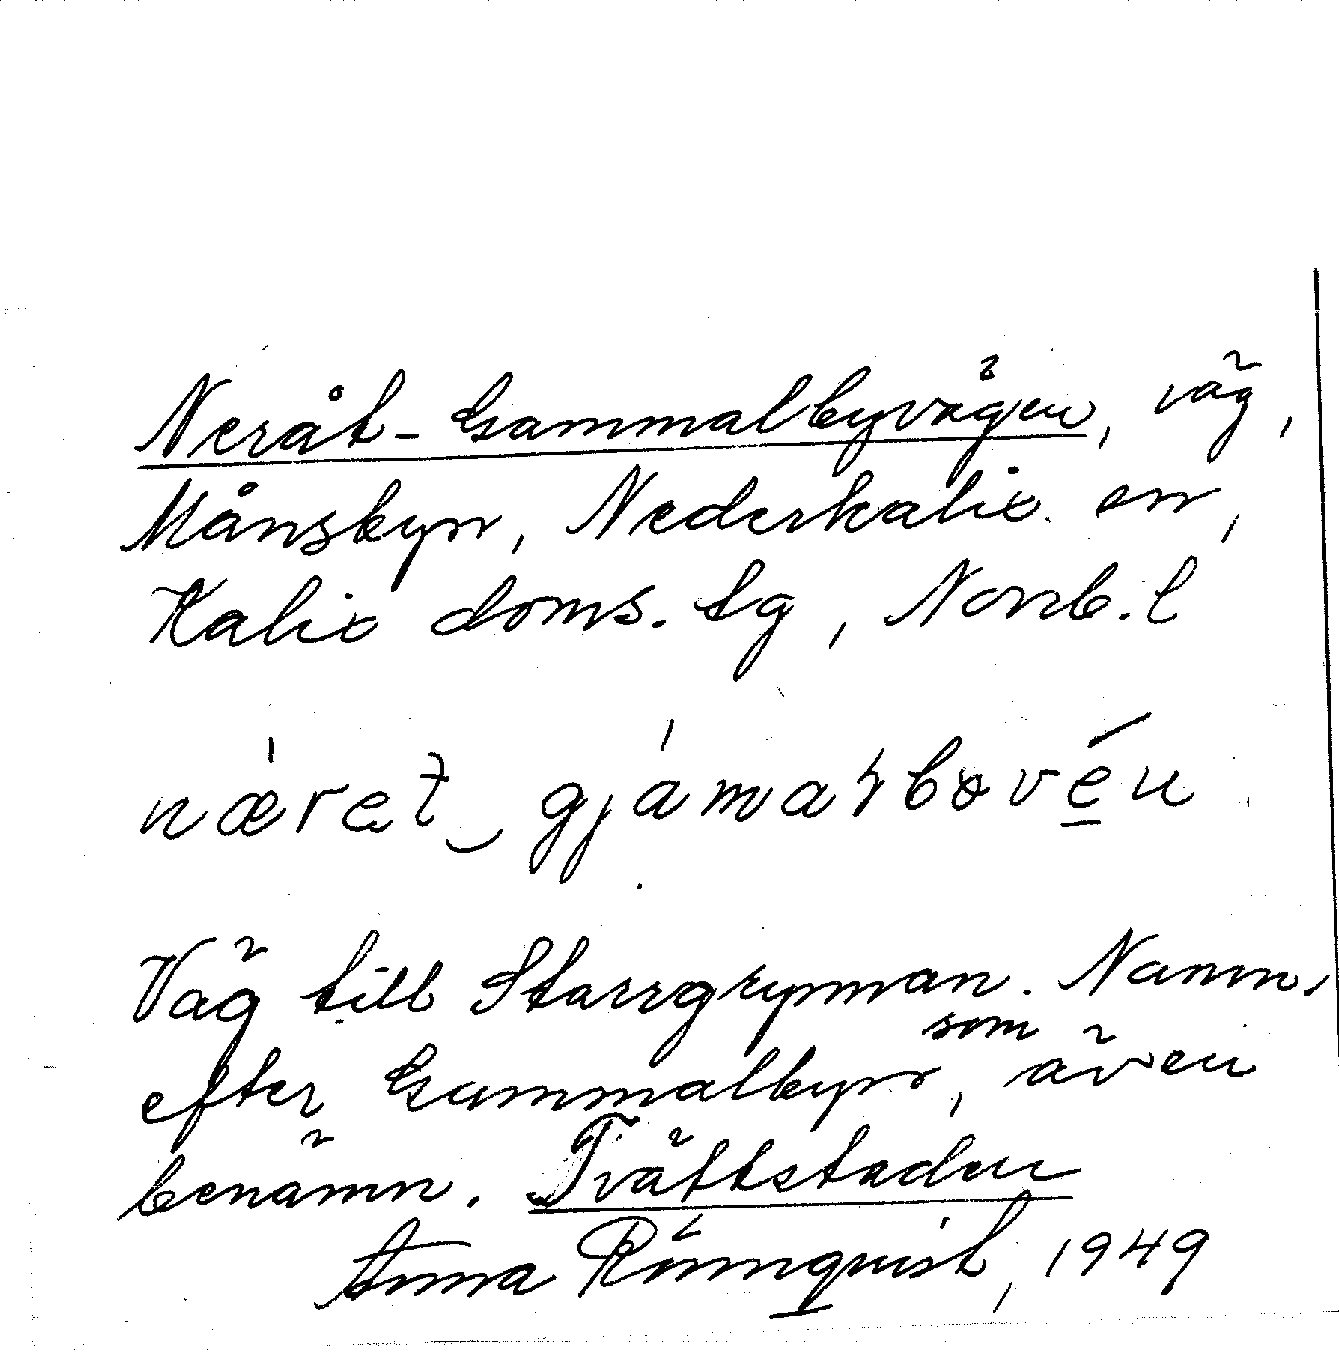 Neråt-Gammalbyvägen, väg,
Månsbyn, Nederkalix sn,
Kalix doms. tg, Norrb. l
nǽrat‿gjámaɫbovén
Väg till Starrgrynnan. Namn,
efter Gammalbyn, som även
benämn. Tvättstaden
Anna Rönnquist, 1949